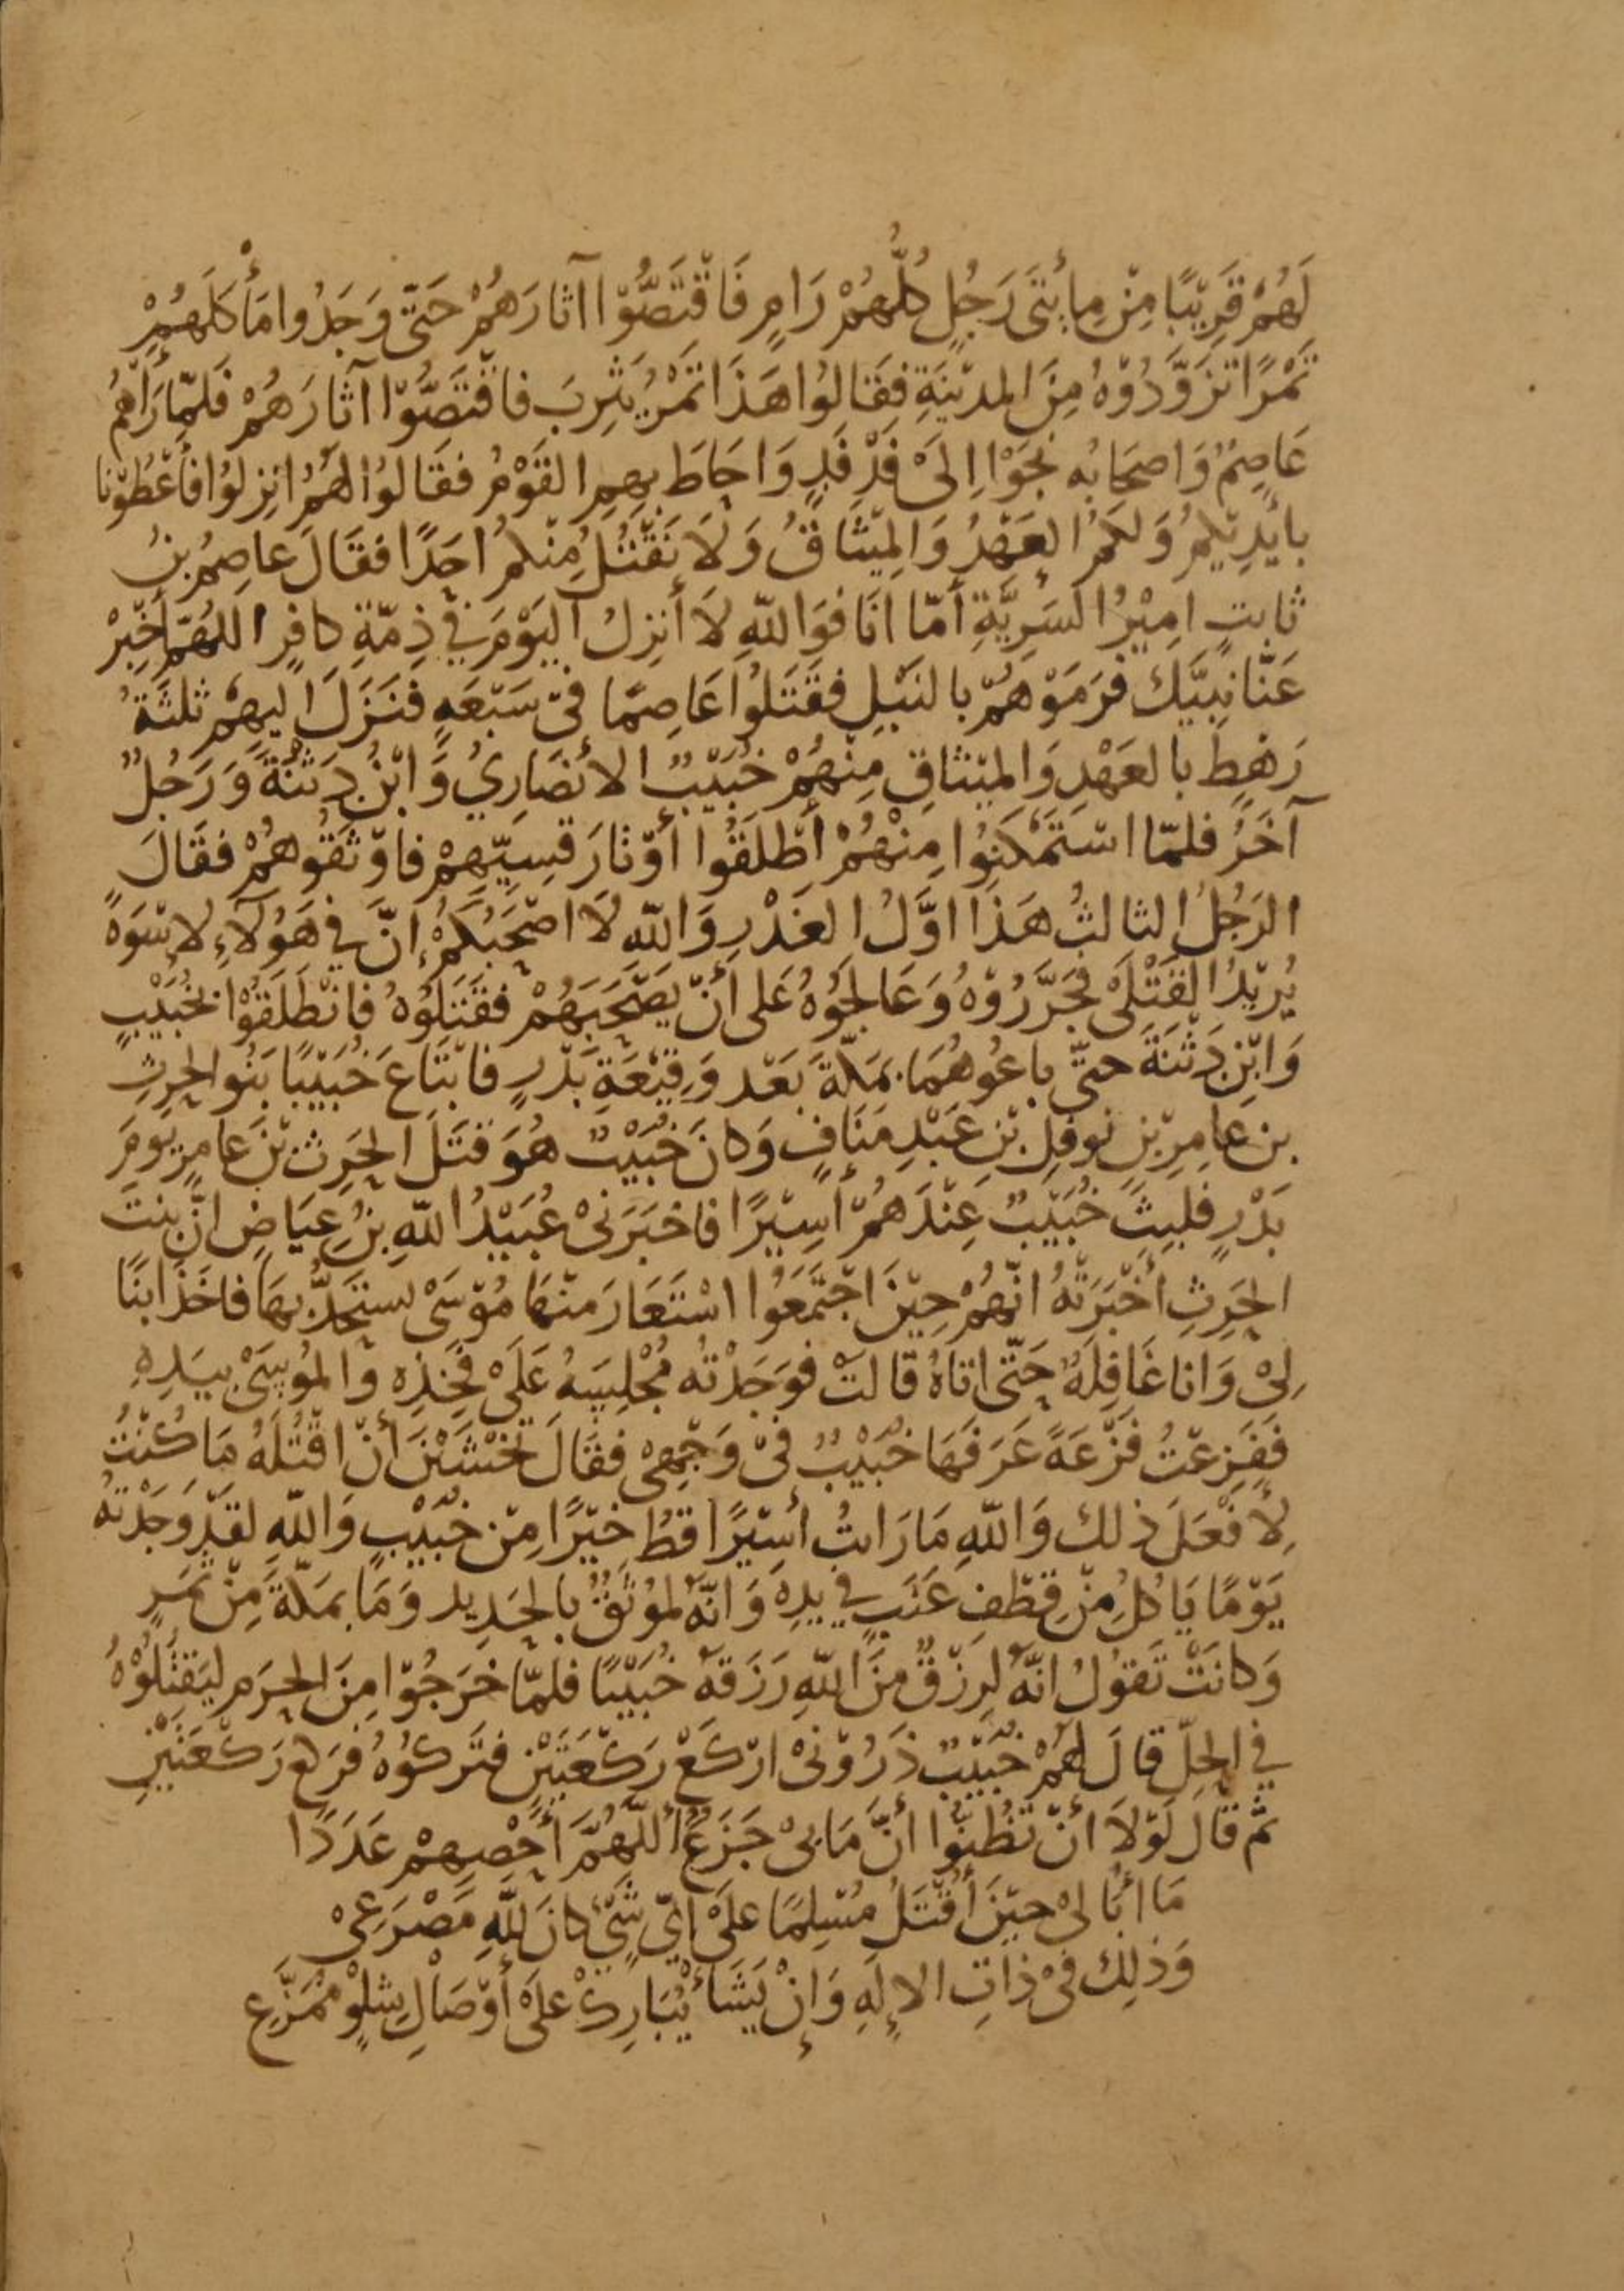 لَهُمْ قَرِيْبًا مِنْ مِائَتَى رَجُلٍ كُلُّهُمْ رَامٍ فَاقْتَصُّوْا آثَارَهُمْ حَتّى وَجَدُوا مَأْكَلَهُمْ
تَمْرًا تَزَوَّدُوْهُ مِنَ المدِيْنَةِ فَقَالُوا هَذَا تَمْرُ يَثْرِبَ فاقْتَصُّوْا آثَارَهُمْ فلَمّا رَأَهُمْ
عَاصِمٌ وَاصحَابُه نَجَوْا اِلىَ فَدْفَدٍ وَاحَاطَ بِهِمِ القَوْمُ فقَالُوا لَهُمُ انِزِلوُا فأَعْطُوْنا
بِأيْدِيْكُمْ وَلَكُمُ العَهْدُ وَالمِيْثَاقُ وَلاَ نَقْتُلُ مِنْكُمْ احَدًا فقَالَ عاصِمُ بنُ
ثابتٍ امِيْرُ السَرِيَّةِ أَمّا انَا فوَاللّهِ لاَ أنزِلُ اليَوْمَ فيْ ذِمّةِ كافِرٍ اللهُمّ أَخْبِرْ
عَنّا نبِيَّك فَرمَوْهُمْ بالنبْلِ فقَتَلوُا عَاصِمًا فىْ سَبْعَةٍ فنَزَلَ اليهِمْ ثلثَةُ
رَهطٍ بالعَهْدِ وَالميْثاقِ مِنْهُمْ خُبَيْبٌ الأنصَارِيُ وَابْنُ دَثِنَةَ وَرَجُلٌ
آخَرُ فلمّا اسْتَمْكنُوا مِنْهُمْ أَطْلَقُوا أَوْتارَ قسِيّهِمْ فاوْثقُوهُمْ فقَالَ
الرَجُلُ الثالثُ هَذَا اوّلُ الغَدْرِ وَاللّهِ لاَ اصْحَبُكُمْ إنّ في هَؤُلآءِ لاسْوَةً
يُرِيْدُ القَتْلَى فَجَرَّرُوْهُ وَعَالَجُوْهُ عَلى أَنْ يَصْحَبَهُمْ فقَتَلُوْهُ فانْطَلَقُوْا بخُبَيْبٍ
وَابْنِ دَثِنَةَ حتّى باعُوهُمَا بمَكّةَ بَعْد وَقِيْعَةِ بَدْرٍ فابْتَاعَ خُبَيْبًا بَنُوا الحرِثِ
بنِ عامِرِ بْنِ نوفِلِ بْنِ عَبْدِ مَنَافٍ وَكانَ خُبَيْبٌ هُوَ قتَلَ الحَرِثَ بْنَ عامِرٍ يومَ
بَدْرٍ فلبِثَ خُبَيْبٌ عِنْدَهُمْ أسِيْرًا فاخبَرَنىْ عُبَيْدُ اللّهِ بنُ عِيَاضٍ انّ بنتَ
الحَرِثِ أَخْبَرَتْهُ انّهُمْ حِيْنَ اجْتَمَعُوا اسْتَعَارَ مِنْهَا مُوْسَىْ يستَحِدُّ بِهَا فاخَذَ ابنًا
لِىْ وَانا غَافِلَةٌ حَتّى اتاهُ قالتْ فوَجَدْتُه مُجْلِسَهُ عَلَىْ فَخِذِهِ وَالمُوْسَىْ بيَدِهِ
فَفَزِعْتُ فَزْعَةً عَرَفَهَا خُبَيْبٌ فىْ وَجْهِىْ فقَالَ تَخْشَيْنَ أَنْ اقْتُلَهُ مَا كُنْتُ
لأَفْعَلَ ذلك وَاللّهِ مَا رَايتُ أَسِيْرًا قطُ خيْرًا مِنْ خُبَيْبٍ وَاللّهِ لقَدْ وَجَدْتهُ
يَوْمًا يَاكُلُ مِنْ قِطْفِ عِنَبٍ فِي يدِهِ وَانّهُ لمُوْثَقٌ بالحَدِيدِ وَمَا بمَكّةَ مِنْ ثمَرٍ
وَكانَتْ تَقوُلُ انّهُ لَرِزْقٌ مِنَ اللّهِ رَزَقَهُ خُبَيْبًا فلمّا خرَجُوْا مِنَ الحرَمِ ليَقْتُلُوْهُ
في الحِلّ قالَ لَهُمْ خُبَيْبٌ ذَرُوْنىْ ارْكَعْ رَكْعَتَيْنِ فتَركُوْهُ فرَكع رَكْعَتَيْنِ
ثمّ قَالَ لَوْلاَ أنْ تَظُنُّوا أَنَّ مَا بىْ جَزَعٌ أللّهُمَّ أَحْصِهِمْ عَدَدًا
مَا أُبَالىْ حيْنَ أُقْتَلُ مُسْلِمًا علىَ ايّ شَيْءٍ كانَ لِلّهِ مَصْرَعِىْ
وَذلِكَ فىْ ذاتِ الإِلَهِ وَإِنْ يَشَأْ يُبَارِكْ علىَ أوْصَالِ شِلْوٍ مُمَزَّعِ